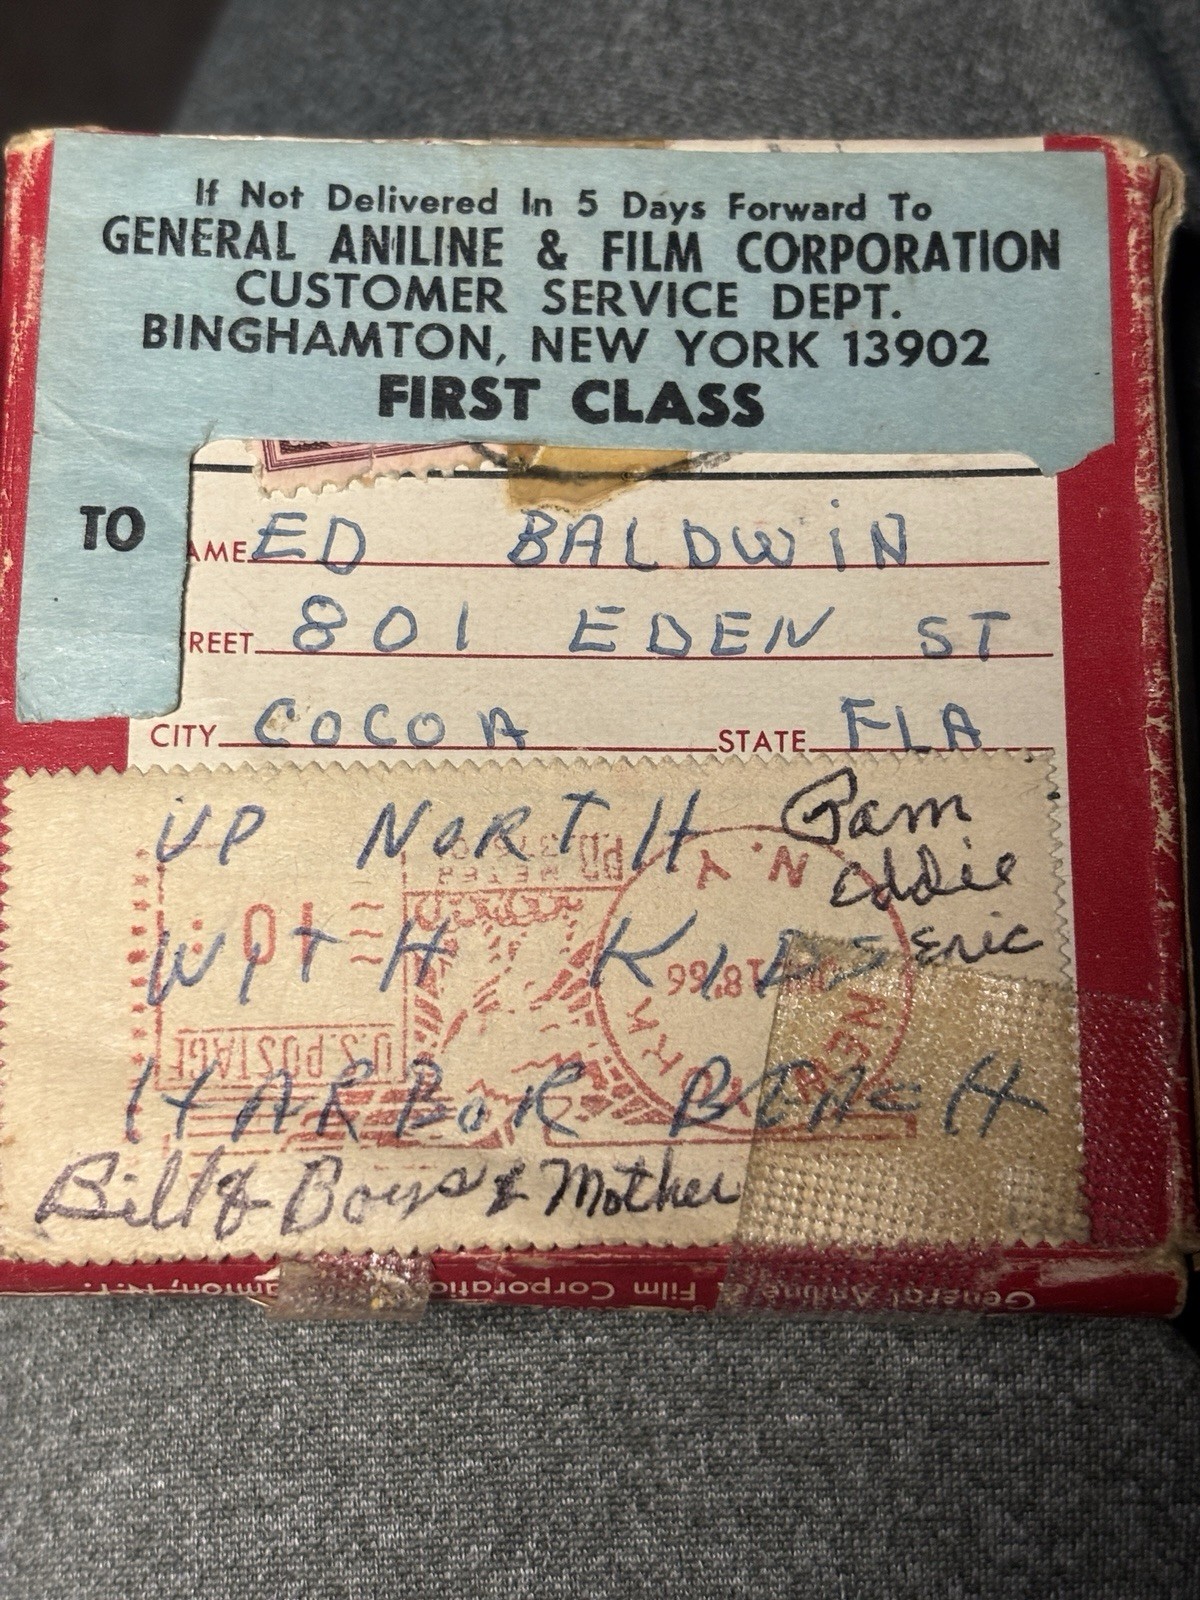 If Not Delivered In 5 Days Forward To
GENERAL ANILINE & FILM CORPORATION
CUSTOMER SERVICE DEPT.
BINGHAMTON, NEW YORK 13902
FIRST CLASS
TO
AME ED BALDWIN
REET 801 EDEN ST
CITY COCOA STATE FLA
UP NORTH Pam
Eddie
WITH KIDS Eric
HARBOR BEACH
Bill & Boys & Mother
PB METER
10
N.Y.
18 '66
NEW YORK
U.S. POSTAGE
General Aniline & Film Corporation, N.Y.